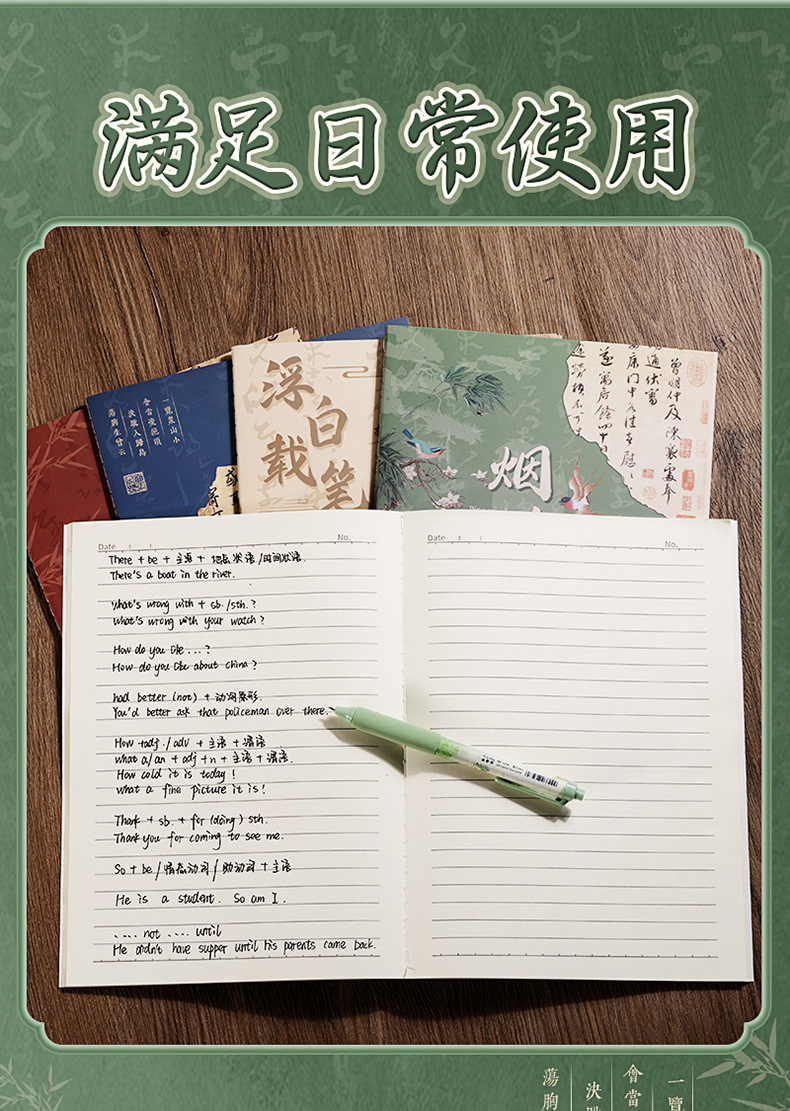 满足日常使用
一覽衆山小
會當凌絕頂
決眥入歸鳥
蕩胸生曾云
浮白载笔
烟
曾明仲及陳襄處奉
Date
No.
There + be + 主语 + 地点状语/时间状语.
There's a boat in the river.
What's wrong with + sb./sth.?
What's wrong with your watch?
How do you like...?
How do you like about china?
had better (not) + 动词原形.
You'd better ask that policeman over there.
How +adj./adv + 主语 + 谓语
what a/an + adj +n + 主语 + 谓语.
How cold it is today!
what a fine picture it is!
Thank + sb. + for (doing) sth.
Thank you for coming to see me.
So + be/情态动词/助动词 + 主语
He is a student. So am I.
.... not .... until
He didn't have supper until his parents came back.
Date
No.
一覽
會當
決
蕩胸